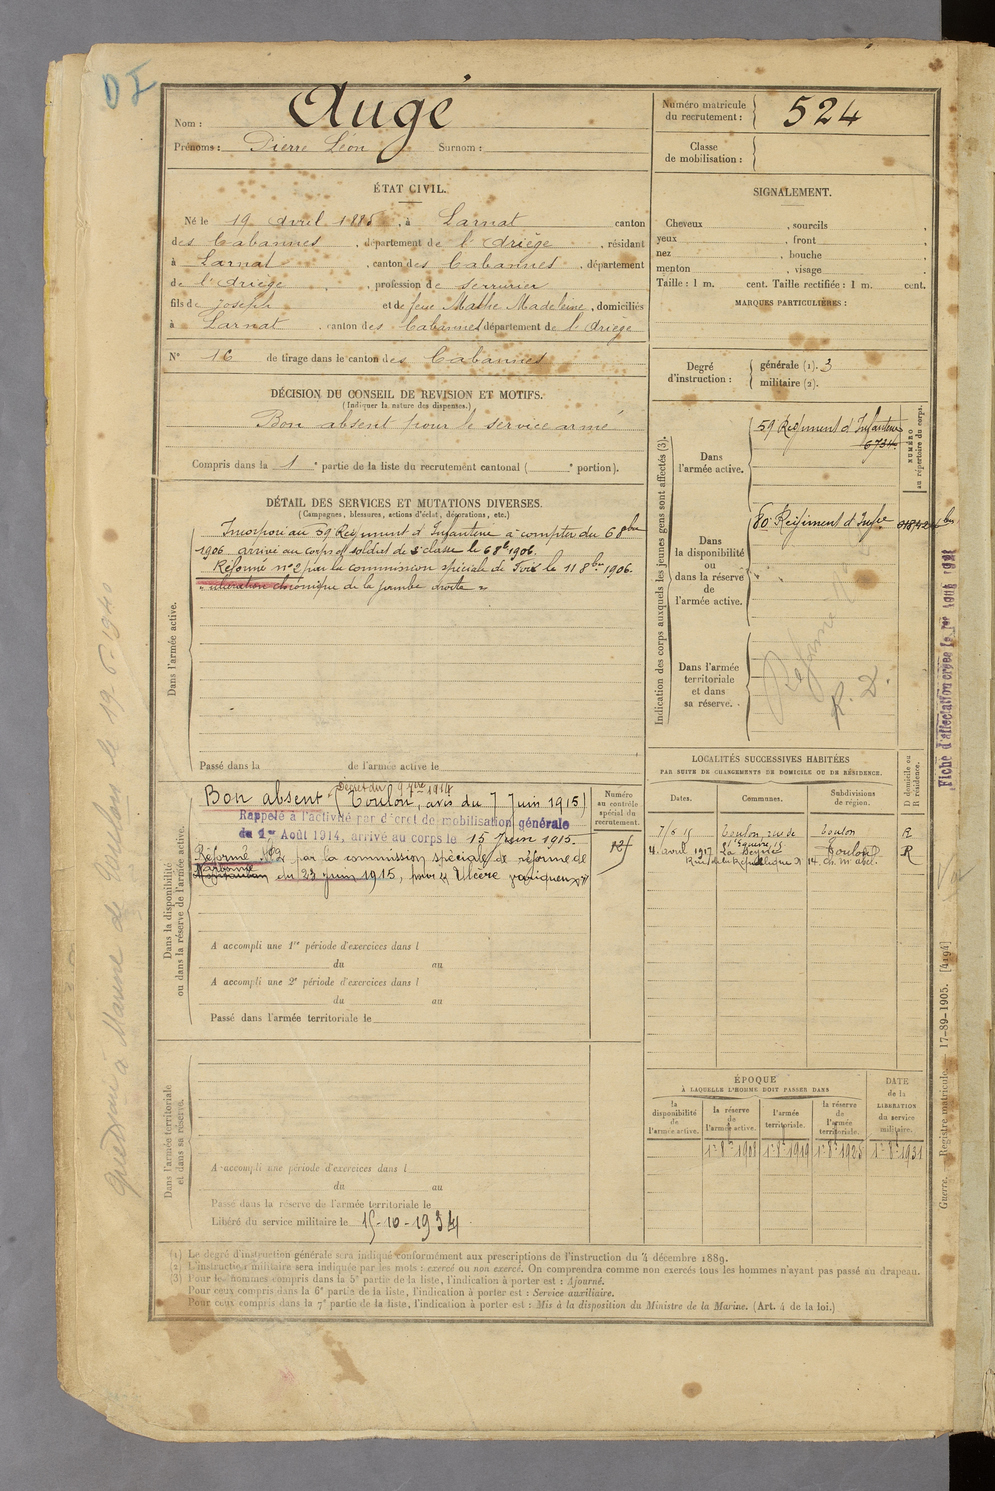 DI
Nom : Augé
Prénoms : Pierre Léon Surnom :
Numéro matricule du recrutement : 524
Classe de mobilisation :
ÉTAT CIVIL.
Né le 19 avril 1885, à Larnat canton
des Cabannes, département de l'Ariège, résidant
à Larnat, canton des Cabannes, département
de l'Ariège, profession de serrurier
fils de Joseph et de feue Mathe Madeleine, domiciliés
à Larnat, canton des Cabannes département de l'Ariège
N° 16 de tirage dans le canton des Cabannes
DÉCISION DU CONSEIL DE REVISION ET MOTIFS.
(Indiquer la nature des dispenses.)
Bon absent pour le service armé
Compris dans la 1e partie de la liste du recrutement cantonal ( e portion).
DÉTAIL DES SERVICES ET MUTATIONS DIVERSES.
(Campagnes, blessures, actions d'éclat, décorations, etc.)
Dans l'armée active.
Incorporé au 59 Régiment d'Infanterie à compter du 6 8bre
1906 arrivé au corps et soldat de 2e classe le 6 8bre 1906.
Réformé n°2 par la commission spéciale de Foix le 11 8bre 1906.
"ulcération chronique de la jambe droite"
Passé dans la de l'armée active le
Dans la disponibilité
ou dans la réserve de l'armée active.
Décret du 9 7bre 1914
Bon absent (Toulon, avis du 7 Juin 1915)
Rappelé à l'activité par décret de mobilisation générale
du 1er Août 1914, arrivé au corps le 15 Juin 1915.
Réformé N°2 par la commission spéciale de réforme de
Narbonne
du 23 Juin 1915, pour "Ulcère variqueux"
A accompli une 1re période d'exercices dans l
du au
A accompli une 2e période d'exercices dans l
du au
Passé dans l'armée territoriale le
Numéro
au contrôle
spécial du
recrutement.
Dans l'armée territoriale
et dans sa réserve.
A accompli une période d'exercices dans l
du au
Passé dans la réserve de l'armée territoriale le
Libéré du service militaire le 15-10-1934
SIGNALEMENT.
Cheveux , sourcils ,
yeux , front
nez , bouche ,
menton , visage
Taille : 1 m. cent. Taille rectifiée : 1 m. cent.
MARQUES PARTICULIÈRES :
Degré d'instruction : générale (1). 3
militaire (2).
Indication des corps auxquels les jeunes gens sont affectés (3).
NUMÉRO
au répertoire du corps.
Dans
l'armée active.
59 Régiment d'Infanterie
6734.
Dans
la disponibilité
ou
dans la réserve
de
l'armée active.
80e Régiment d'Infie
Dans l'armée
territoriale
et dans
sa réserve.
Réformé N° 2
R. D.
LOCALITÉS SUCCESSIVES HABITÉES
PAR SUITE DE CHANGEMENTS DE DOMICILE OU DE RÉSIDENCE.
Dates. Communes. Subdivisions de région. D domicile ou R résidence.
7/6 15 Toulon, rue de Toulon R
4 avril 1917 La Seyne Toulon R
Rue de la République
ÉPOQUE
À LAQUELLE L'HOMME DOIT PASSER DANS
la disponibilité de l'armée active.
la réserve de l'armée active.
l'armée territoriale.
la réserve de l'armée territoriale.
DATE de la LIBÉRATION du service militaire.
1er 8bre 1908 1er 8bre 1919 1er 8bre 1925 1er 8bre 1931
(1) Le degré d'instruction générale sera indiqué conformément aux prescriptions de l'instruction du 4 décembre 1889.
(2) L'instruction militaire sera indiquée par les mots : exercé ou non exercé. On comprendra comme non exercés tous les hommes n'ayant pas passé au drapeau.
(3) Pour les hommes compris dans la 5e partie de la liste, l'indication à porter est : Ajourné.
Pour ceux compris dans la 6e partie de la liste, l'indication à porter est : Service auxiliaire.
Pour ceux compris dans la 7e partie de la liste, l'indication à porter est : Mis à la disposition du Ministre de la Marine. (Art. 4 de la loi.)
Guerre. — Registre matricule. — 17-89-1905. [4194]
à Marine de Toulon le 19-6-1940